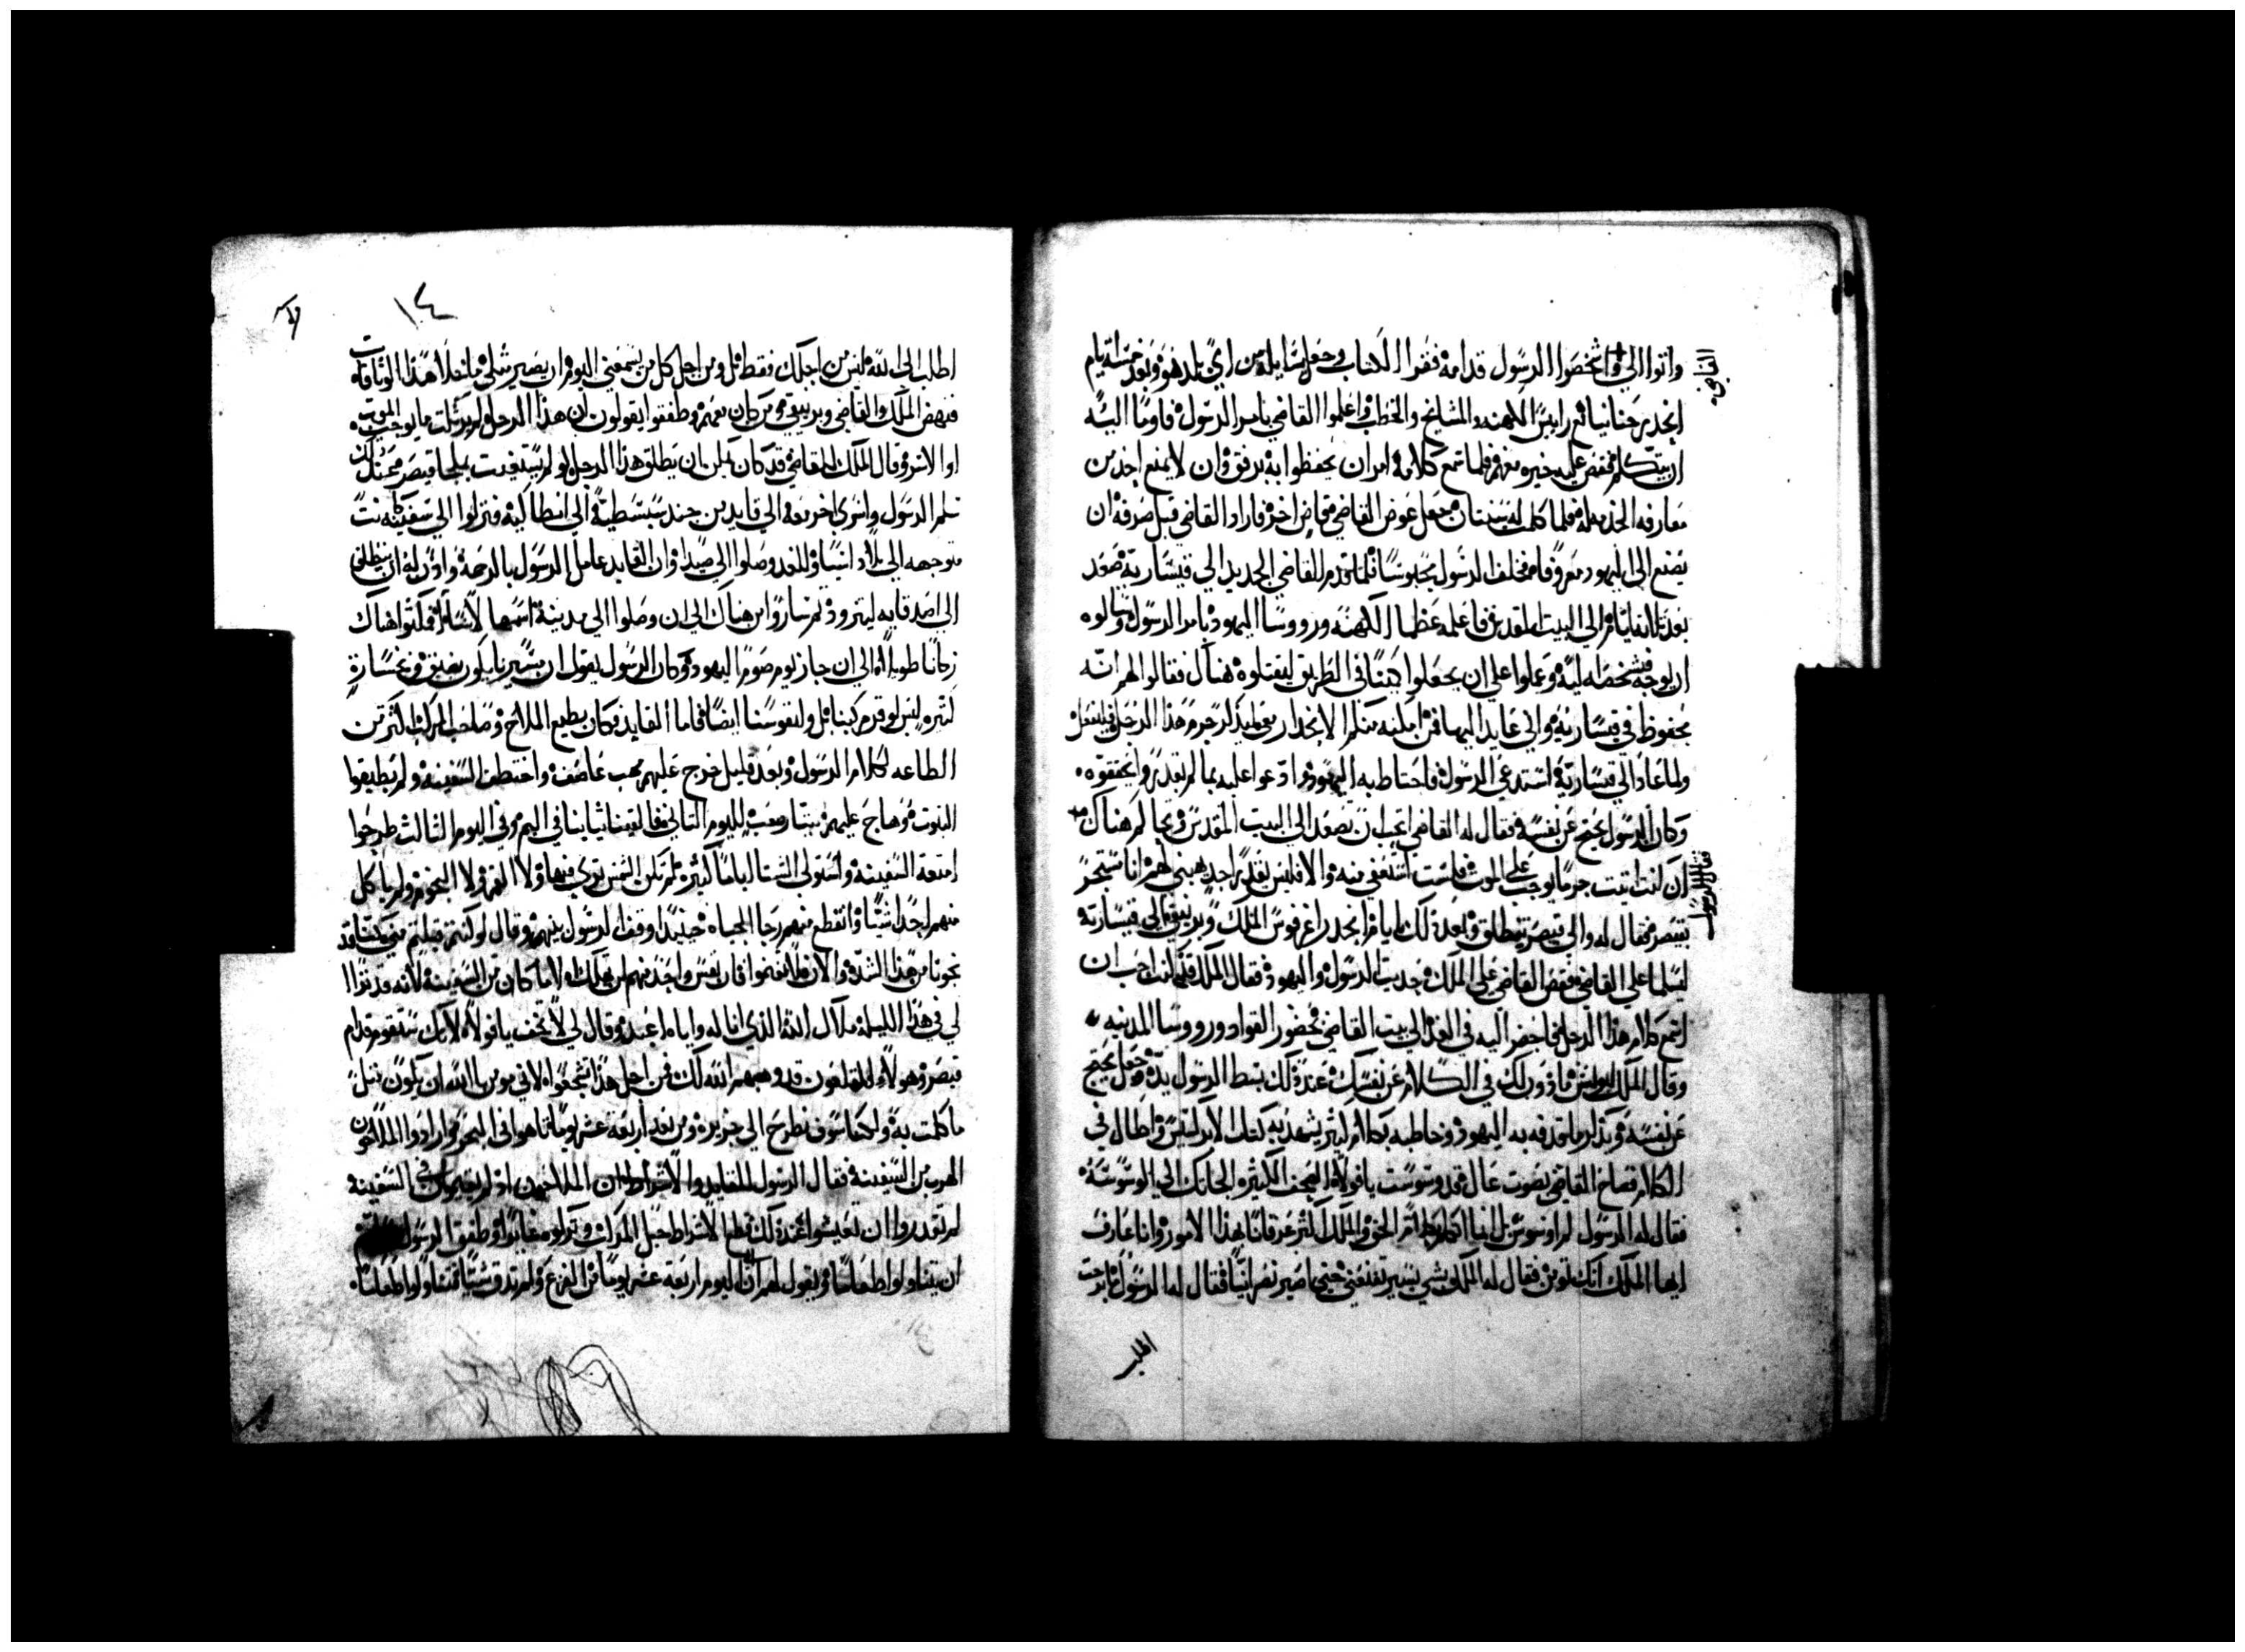 واتوا الي واشخصوا الرسول قدامه فقرا الكتاب وجعل يسايله من اي بلد هو وبعد خمسة ايام
القاضي
انحدر حنانيا مع راييس الكهنه والمشايخ والخطاب واعلموا القاضي بامر الرسول فاوما اليه
ان يتكلم فقص عليه خبره معهم فلما سمع كلامه امر ان يحفظوا به برفق وان لا يمنع احد من
معارفه الخدمه له فلما كملت له سنتان جعل عوض القاضي قاض اخر فاراد القاضي قبل صرفه ان
يصنع الي اليهود معروفا فخلف الرسول محبوسا فلما قدم القاضي الجديد الي قيسارية صعد
بعد ثلاثة ايام الي البيت المقدس فاعلمه عظما الكهنه ورووسا اليهود بامر الرسول وسالوه
ان يوجه فيشخصه اليه وعملوا علي ان يجعلوا كمينا في الطريق ليقتلوه هناك فقال لهم انه
محفوظ في قيسارية واني عايد اليها فمن امكنه منكم الانحدار معي ليذكر جرم هذا الرجل فليفعل
ولما عاد الي قيسارية استدعي الرسول فاحتاط به اليهود وادعوا عليه بما لم يقدروا يحققوه
وكان الرسول يحتج عن نفسه فقال له القاضي اتحب ان تصعد الي البيت المقدس وتحاكم هناك
فقال الرسول
ان كنت اتيت جرما يوجب علي الموت فلست استعفي منه والا فليس يقدر احد يهبني لهم انا مستجير
بقيصر فقال له والي قيصر تنطلق وبعد ذلك بايام انحدر اغرفوس الملك وبرنيقي الي قيسارية
ليسلما علي القاضي فقص القاضي علي الملك حديث الرسول واليهود فقال الملك قد كنت احب ان
اسمع كلام هذا الرجل فاحضر اليه في الغد الي بيت القاضي بحضور القواد ورووسا المدينه
وقال الملك لبولس ماذون لك في الكلام عن نفسك عند ذلك بسط الرسول يده وجعل يحتج
عن نفسه ويذكر ما قدفه به اليهود وخاطبه بكلام كثير يشهد به كتاب الابركسيس واطال في
الكلام فصاح القاضي بصوت عال قد وسوست يا فولاه الصحف الكثيره الجاتك الي الوسوسة
فقال له الرسول لم اوسوس انما اتكلم كلام الحق والملك اكثر عرفانا بهذا الامور وانا عارف
ايها الملك انك تومن فقال له الملك بشي يسير تقنعني حتي اصير نصرانيا فقال له الرسول ما برحت
اطلب
١٤
اطلب الي الله ليس من اجلك فقط بل ومن اجل كل من يسمعني اليوم ان يصير مثلي ما خلا هذا الوثاقات
فنهض الملك والقاضي وبرنيقي ومن كان معهم وطفقوا يقولون ان هذا الرجل لم يات ما يوجب الموت
او الاسر وقال الملك للقاضي قد كان يمكن ان يطلق هذا الرجل لو لم يستغيث بملجا قيصر
تسلم الرسول واسري اخر معه الي قايد من جند سبسطية الي انطاكية فنزلوا الي سفينة كانت
متوجهه الي بلاد اسيا وللغد وصلوا الي صيدا وان القايد عامل الرسول بالرحمة واذن له ان ينطلق
الي اصدقايه ليتزود ثم ساروا من هناك الي ان وصلوا الي مدينة اسمها لاسا فمكثوا هناك
زمانا طويلا الي ان جاز يوم صوم اليهود وكان الرسول يقول ان مسيرنا يكون بضيق وخسارة
كثيره ليس لوقر مركبنا بل ولنفوسنا ايضا فاما القايد فكان يطيع الملاح وصاحب المركب اكثر من
الطاعه لكلام الرسول وبعد قليل خرج عليهم مهب عاصف واختطف السفينه ولم يطيقوا
الثبوت وهاج عليهم شتا صعب لليوم الثاني فالقينا ثيابنا في اليم وفي اليوم الثالث طرحوا
امتعة السفينه واستولي الشتا اياما كثيره لم تكن الشمس تري فيها ولا القمر ولا النجوم ولم ياكل
منهم احد شيا وانقطع منهم رجا الحياه حينيذ وقف الرسول بينهم وقال لو كنتم قبلتم مني لكنا قد
نجونا من هذا الشدة والان فلا تغتموا فان نفس واحد منكم لن تهلك الا ما كان من السفينه لانه قد ترا
لي في هذا الليلة ملاك الله الذي انا له واياه اعبد وقال لي لا تخف يا فولاه لانك ستقوم قدام
قيصر وهولاء المقلعون قد وهبهم الله لك فمن اجل هذا تشجعوا لاني مومن بالله ان يكون مثل
ما كلمت به ولكنا سوف نطرح الي جزيره ومن بعد اربعة عشر يوما تاهوا في البحر وارادوا الملاحون
الهرب من السفينه فقال الرسول للقايد والاشراط ان الملاحين اذ لم يقيموا في السفينه
لم تقدروا ان تعيشوا عند ذلك قطع الاشراط حبل المركب وتركوه غايرا وطفق الرسول
ان يتناولوا طعاما ويقول لهم ان اليوم اربعة عشر يوما من الفزع ولم تذق شيا فتناولوا طعاما